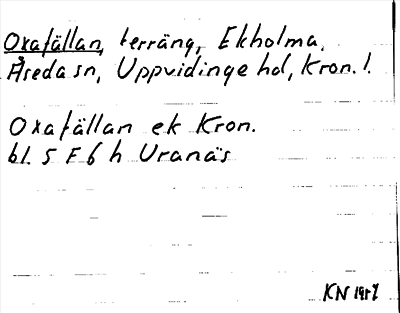 Oxafällan, terräng, Ekholma,
Åseda sn, Uppvidinge hd, Kron. l.
Oxafällan ek Kron.
bl. 5 F 6 h Uranäs
KN